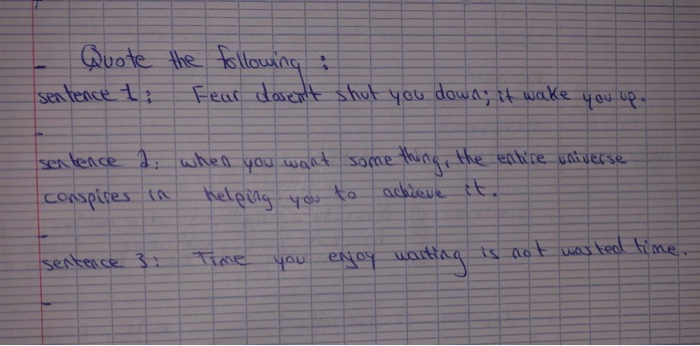 - Quote the following :
sentence 1 : Fear dosen't shut you down; it wake you up.
-
sentence 2 : when you want some thing, the entire universe
conspires in helping you to achieve it.
-
sentence 3 : Time you enjoy waiting is not wasted time.
-